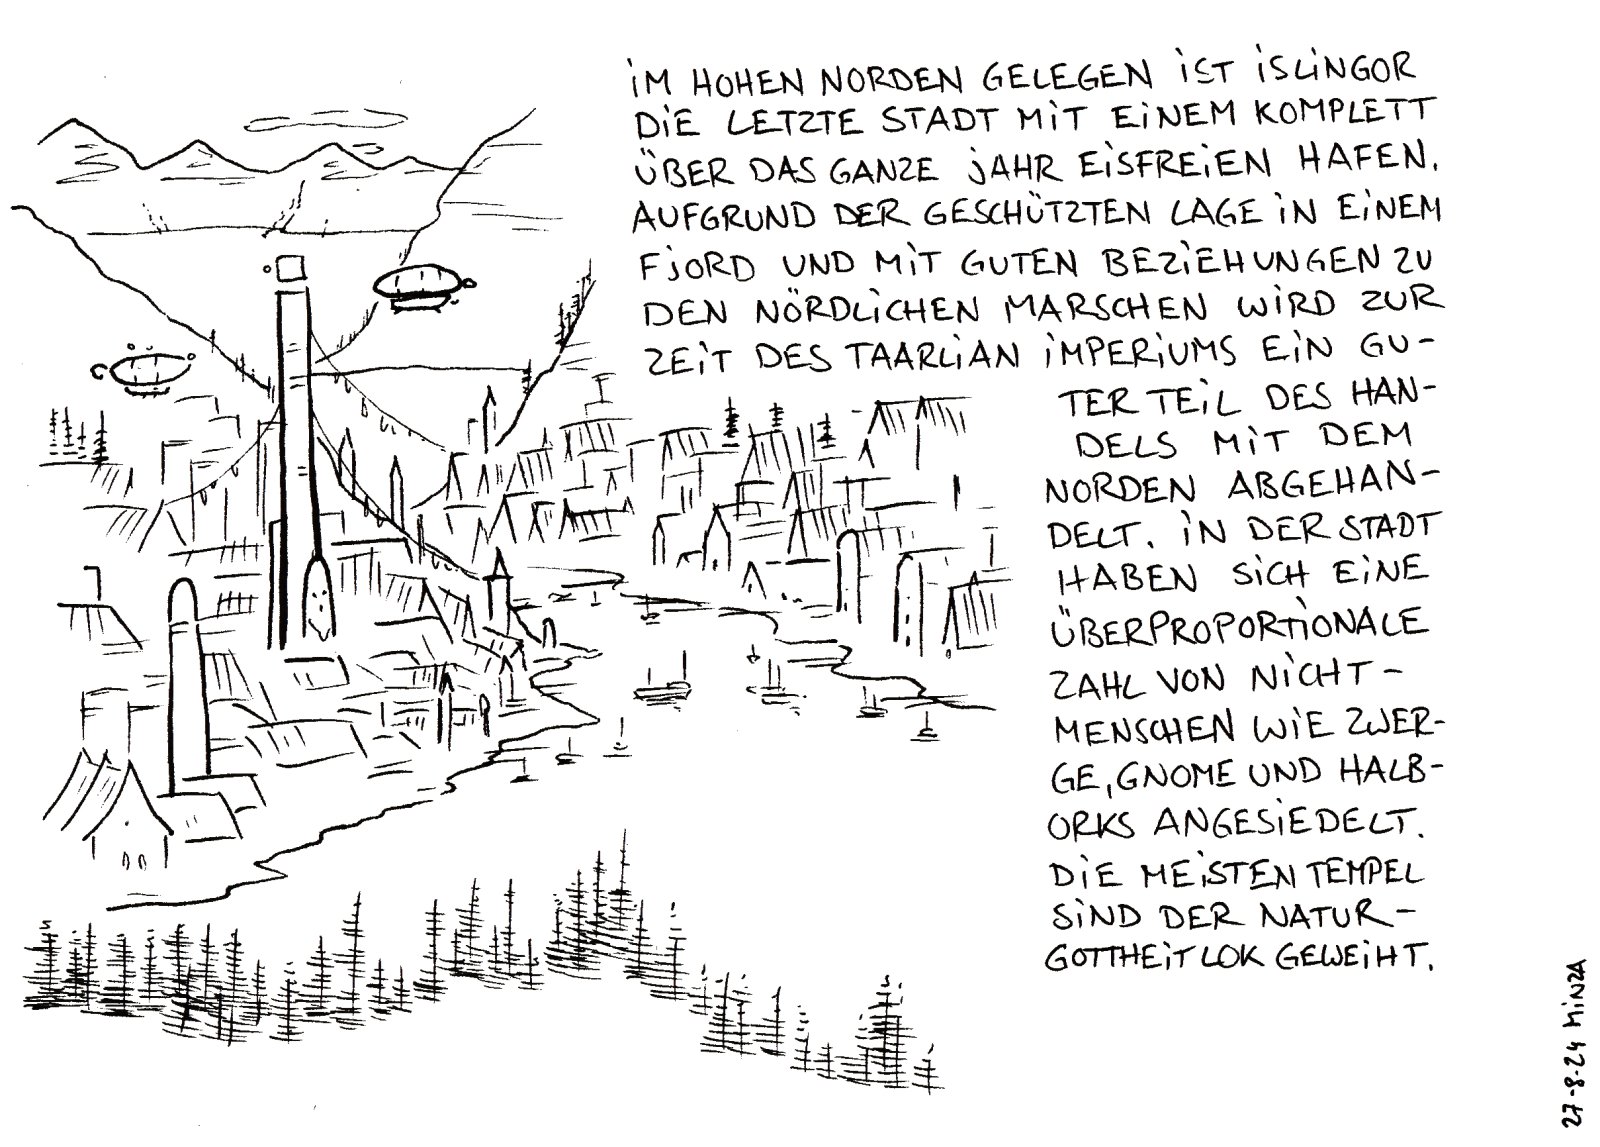 iM HOHEN NORDEN GELEGEN iST iSLiNGOR
DiE LETZTE STADT MiT EiNEM KOMPLETT
ÜBER DAS GANZE jAHR EiSFREiEN HAFEN.
AUFGRUND DER GESCHÜTZTEN LAGE iN EiNEM
FjORD UND MiT GUTEN BEZiEHUNGEN ZU
DEN NÖRDLiCHEN MARSCHEN WiRD ZUR
ZEiT DES TAARLiAN iMPERiUMS EiN GU-
TER TEiL DES HAN-
DELS MiT DEM
NORDEN ABGEHAN-
DELT. iN DER STADT
HABEN SiCH EiNE
ÜBERPROPORTiONALE
ZAHL VON NiCHT-
MENSCHEN WiE ZWER-
GE, GNOME UND HALB-
ORKS ANGESiEDELT.
DiE MEiSTEN TEMPEL
SiND DER NATUR-
GOTTHEiT LOK GEWEiHT.
27-8-24 MiNZA